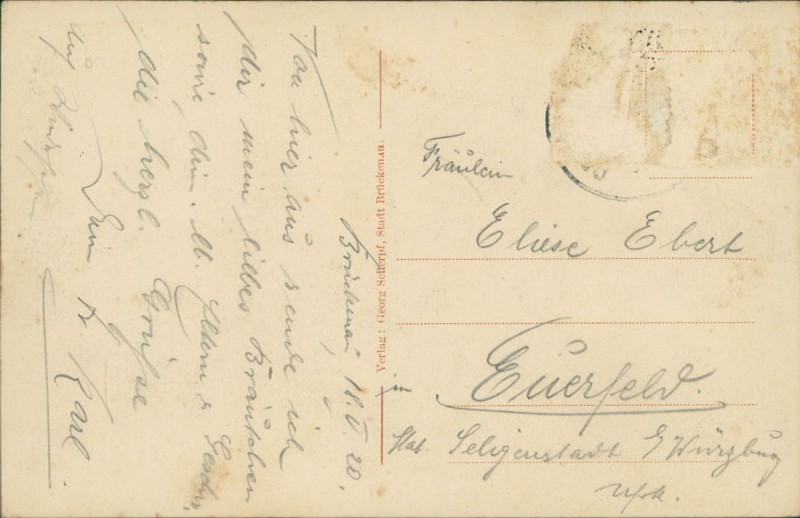 Brückenau, 18.V.20.
Von hier aus sende ich
dir mein liebes Bräutchen
sowie dein. lb. Eltern & Geschw.
die herzl. Grüsse
Dein tr. Karl.
auf
Verlag: Georg Scherpf, Stadt Brückenau.
Fräulein
Eliese Ebert
in
Euerfeld.
Stat. Seligenstadt b/ Würzburg
Ufrk.